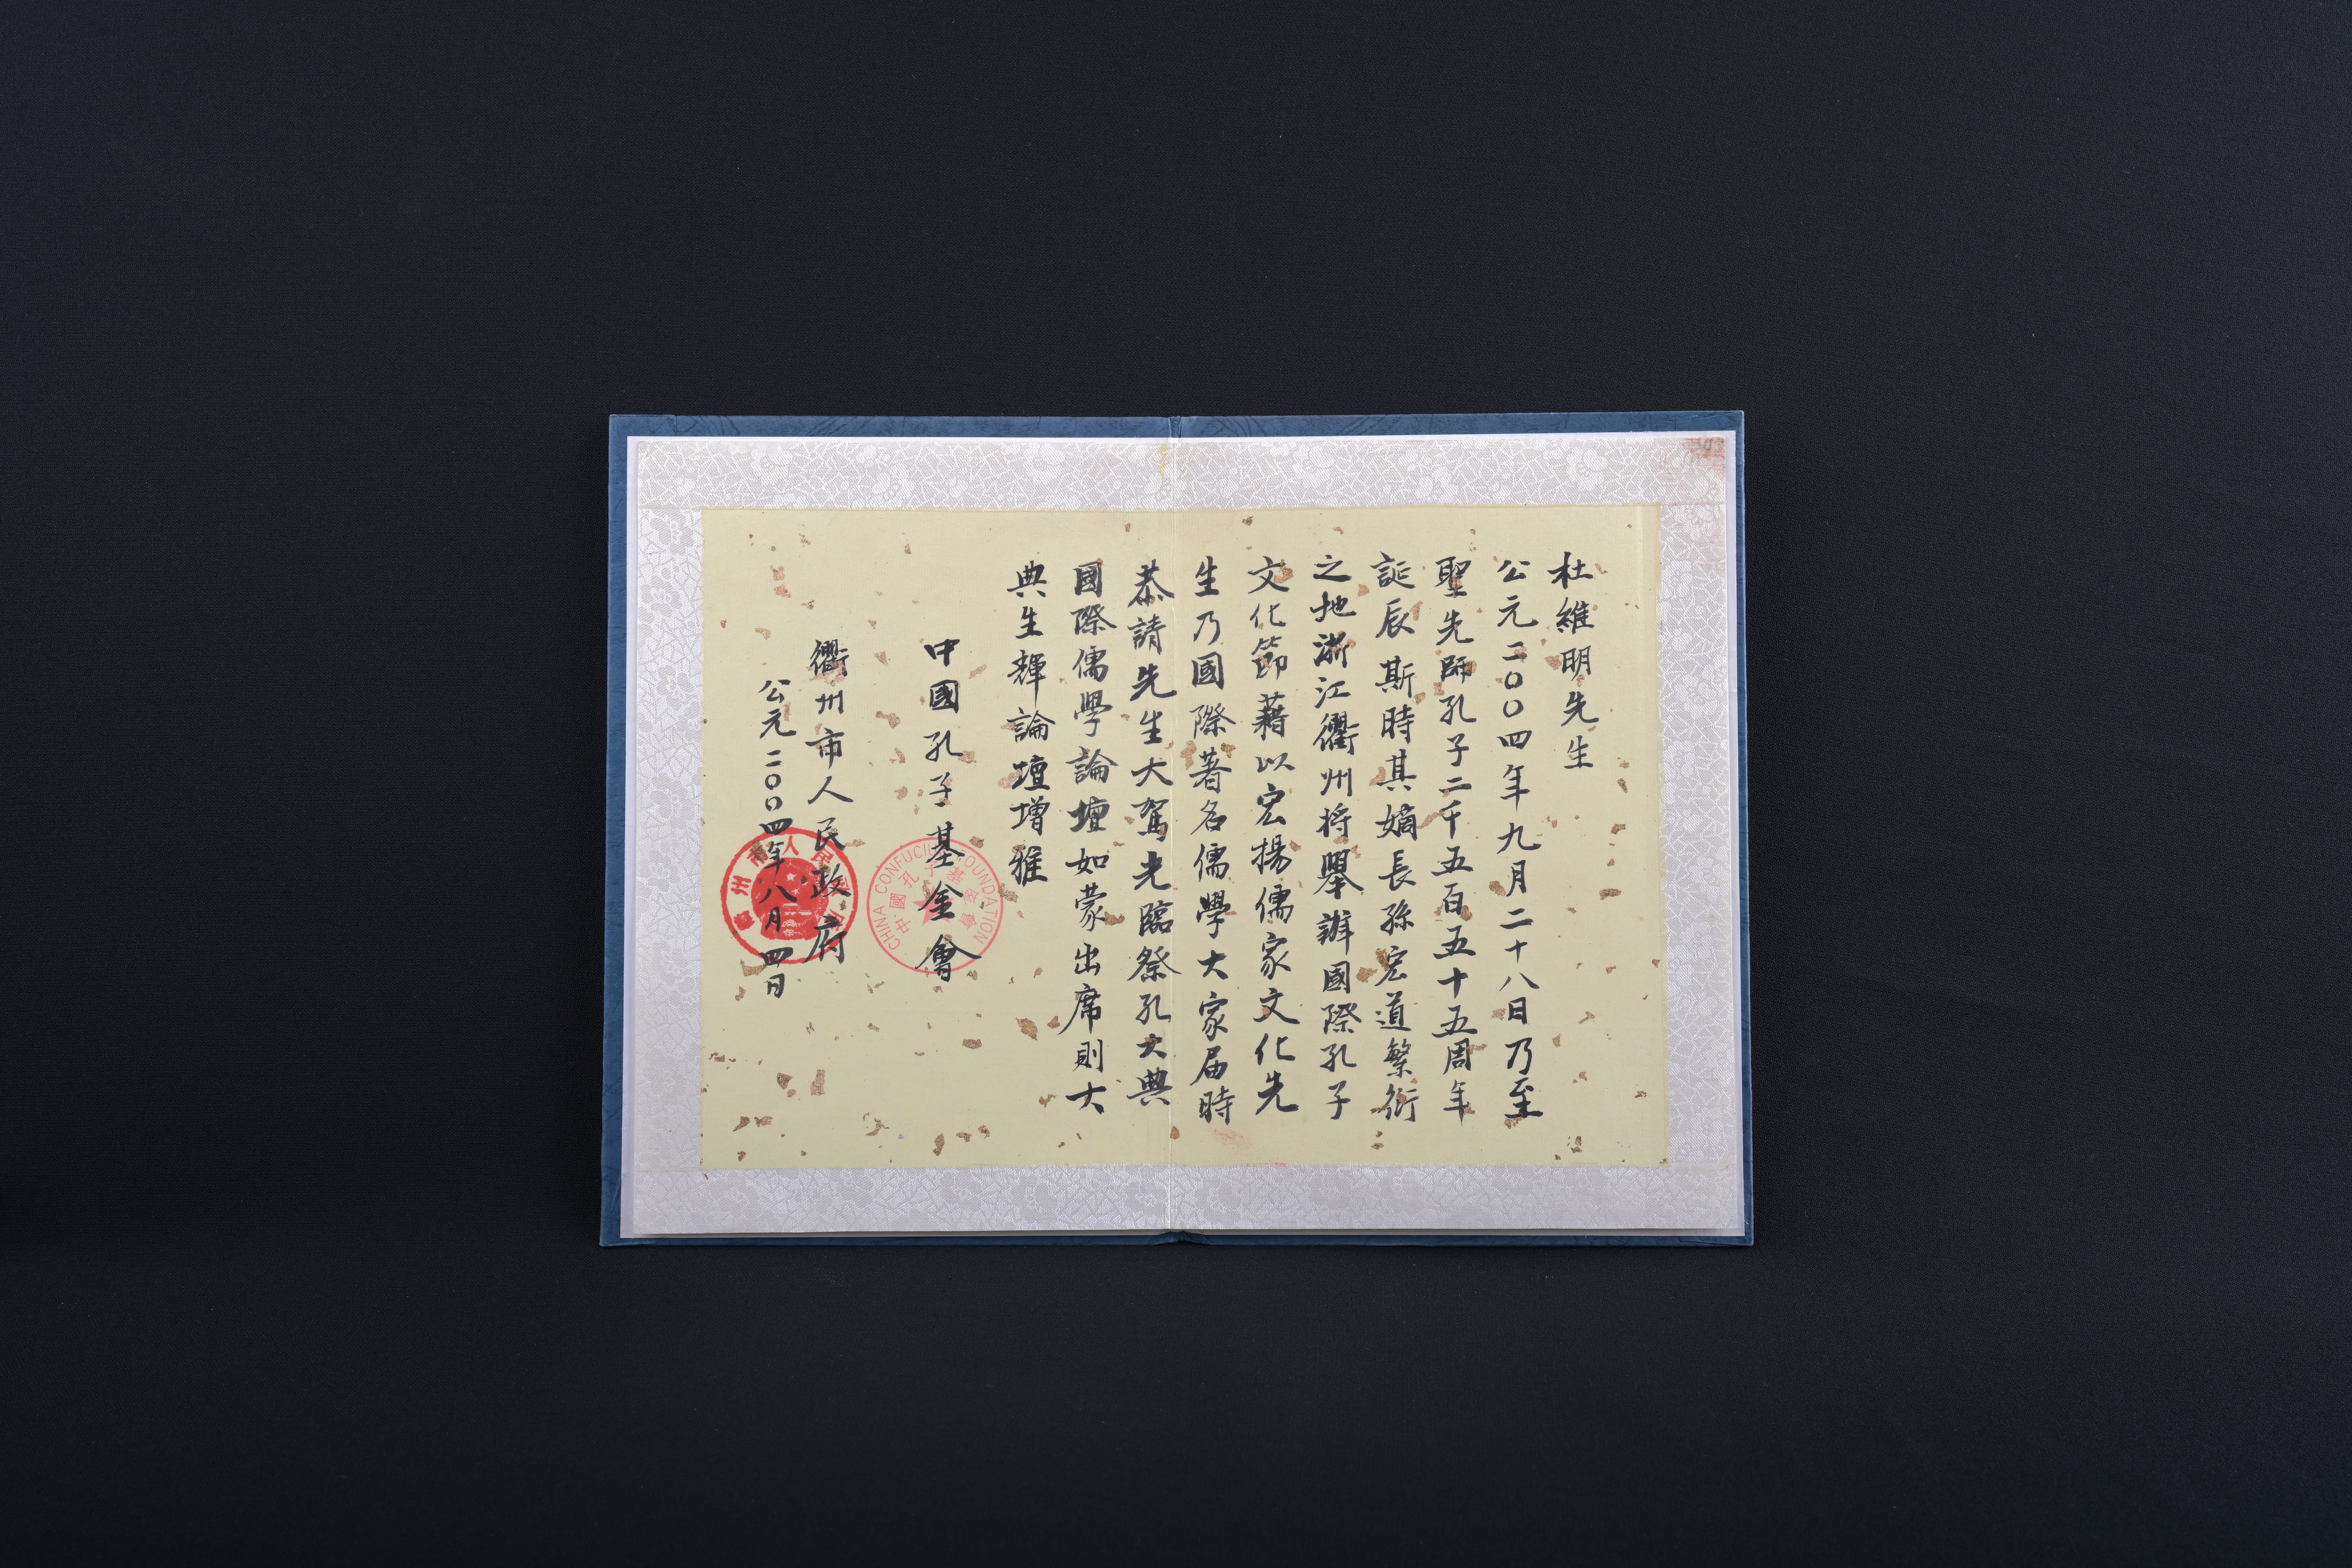 杜維明先生
公元二〇〇四年九月二十八日乃至
聖先師孔子二千五百五十五周年
誕辰斯時其嫡長孫宏道繁衍
之地浙江衢州將舉辦國際孔子
文化節藉以宏揚儒家文化先
生乃國際著名儒學大家届時
恭請先生大駕光臨祭孔大典
國際儒學論壇如蒙出席則大
典生輝論壇增雅
中國孔子基金會
衢州市人民政府
公元二〇〇四年八月四日
CHINA CONFUCIUS FOUNDATION
中國孔子基金會
衢州市人民政府